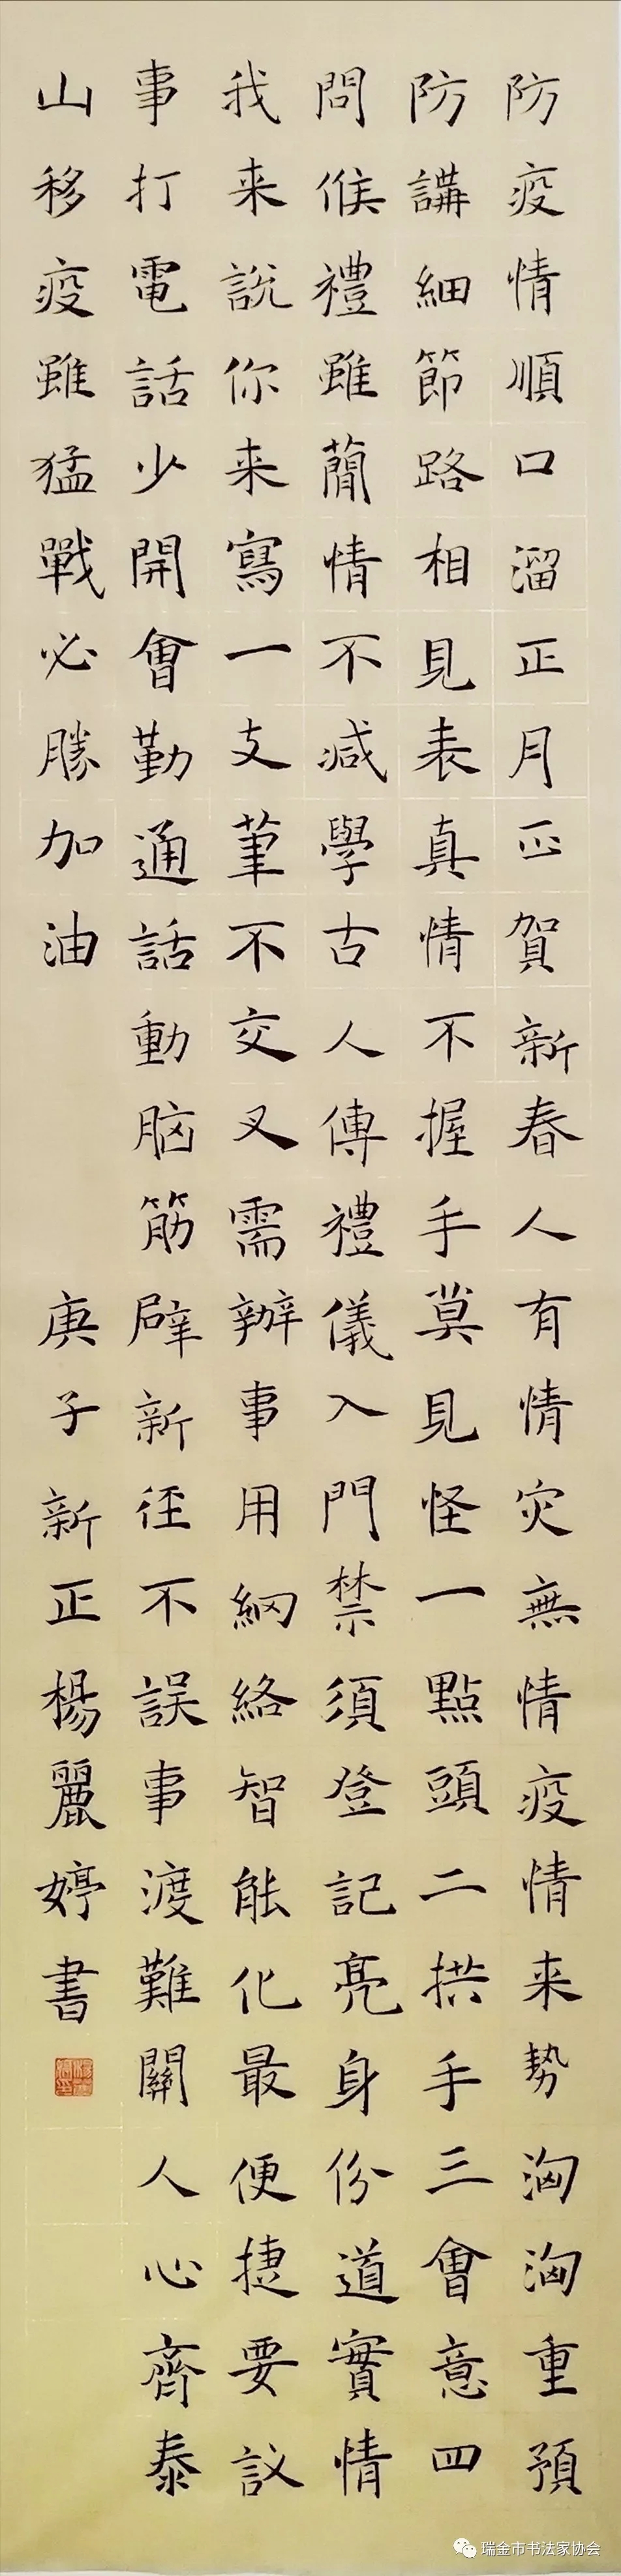 防疫情順口溜正月正賀新春人有情灾無情疫情来势洶洶重預
防講細節路相見表真情不握手莫見怪一點頭二拱手三會意四
問候禮雖蕳情不减學古人傳禮儀入門禁須登記亮身份道實情
我来説你来寫一支筆不交叉需辦事用網絡智能化最便捷要议
事打電話少開會勤通話動脑筋辟新徑不誤事渡難關人心齊泰
山移疫雖猛戰必勝加油
庚子新正楊麗婷書
瑞金市书法家协会